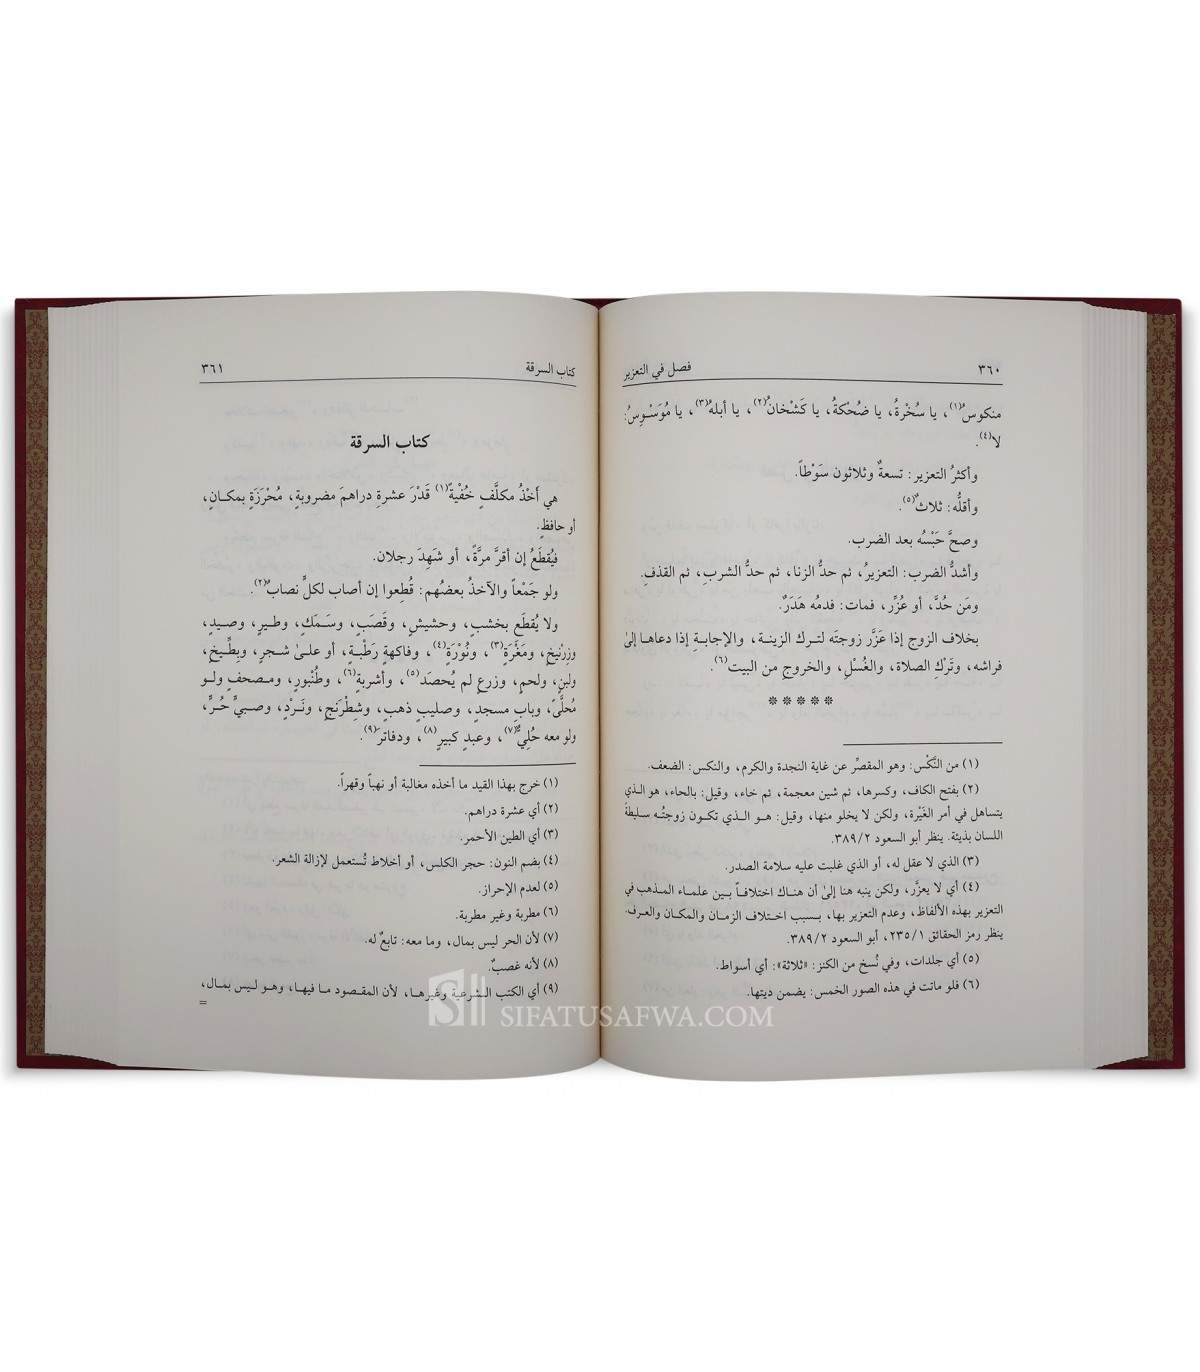 ٣٦٠
فصل في التعزير
منكوسُ(١)، يا سُخْرةُ، يا ضُحْكةُ، يا كَشْخانُ(٢)، يا أبلهُ(٣)، يا مُوَسْوِسُ:
لا(٤).
وأكثرُ التعزير: تسعةٌ وثلاثون سَوْطاً.
وأقلُّه: ثلاثٌ(٥).
وصحَّ حَبْسُه بعد الضرب.
وأشدُّ الضرب: التعزيرُ، ثم حدُّ الزنا، ثم حدُّ الشربِ، ثم القذفِ.
ومَن حُدَّ، أو عُزِّر، فمات: فدمُه هَدَرٌ.
بخلاف الزوج إذا عَزَّر زوجتَه لتـرك الزينـة، والإجابـةِ إذا دعاهـا إلىٰ
فراشه، وتَرْكِ الصلاة، والغُسْلِ، والخروجِ من البيت(٦).
*****
(١) من النَّكْس: وهو المقصِّر عن غاية النجدة والكرم، والنكس: الضعف.
(٢) بفتح الكاف، وكسرها، ثم شين معجمة، ثم خاء، وقيل: بالحاء، هو الذي
يتساهل في أمر الغَيْرة، ولكن لا يخلو منها، وقيل: هـو الـذي تكـون زوجتُـه سليطةَ
اللسان بذيئة. ينظر أبو السعود ٣٨٩/٢.
(٣) الذي لا عقل له، أو الذي غلبت عليه سلامة الصدر.
(٤) أي لا يعزَّر، ولكن ينبه هنا إلىٰ أن هنـاك اختلافـاً بـين علمـاء المـذهب في
التعزير بهذه الألفاظ، وعدم التعزير بها، بـسبب اختـلاف الزمـان والمكـان والعـرف.
ينظر رمز الحقائق ٢٣٥/١، أبو السعود ٣٨٩/٢.
(٥) أي جلدات، وفي نُسخ من الكنز: «ثلاثة»: أي أسواط.
(٦) فلو ماتت في هذه الصور الخمس: يضمن ديتها.
كتاب السرقة
٣٦١
كتاب السرقة
هي أَخْذُ مكلَّفٍ خُفْيةً(١) قَدْرَ عشرةِ دراهمَ مضروبةٍ، مُحْرَزَةٍ بمكـانٍ،
أو حافظٍ.
فيُقطَعُ إن أقرَّ مرَّةً، أو شَهِدَ رجلان.
ولو جَمْعاً والآخذُ بعضُهم: قُطِعوا إن أصاب لكلٍّ نصابٌ(٢).
ولا يُقطَع بخشبٍ، وحشيشٍ، وقَصَبٍ، وسَـمَكٍ، وطيـرٍ، وصـيدٍ،
وزِرْنيخٍ، ومَغَرَةٍ(٣)، ونُوْرَةٍ(٤)، وفاكهةٍ رَطْبـةٍ، أو علىٰ شـجرٍ، وبِطِّـيخٍ،
ولبنٍ، ولحمٍ، وزرعٍ لم يُحصَد(٥)، وأشربةٍ(٦)، وطُنْبورٍ، ومـصحفٍ ولـو
مُحلَّىً، وبابِ مسجدٍ، وصليبِ ذهبٍ، وشِطْرَنجٍ، ونَـرْدٍ، وصـبيٍّ حُـرٍّ،
ولو معه حُلِيٌّ(٧)، وعبدٍ كبيرٍ(٨)، ودفاتر(٩).
(١) خرج بهذا القيد ما أخذه مغالبة أو نهباً وقهراً.
(٢) أي عشرة دراهم.
(٣) أي الطين الأحمر.
(٤) بضم النون: حجر الكلس، أو أخلاط تُستعمل لإزالة الشعر.
(٥) لعدم الإحراز.
(٦) مطربة وغير مطربة.
(٧) لأن الحر ليس بمال، وما معه: تابعٌ له.
(٨) لأنه غصبٌ.
(٩) أي الكتب الـشرعية وغيرهـا، لأن المقـصود مـا فيهـا، وهـو لـيس بمـال،
=
SIFATUSAFWA.COM